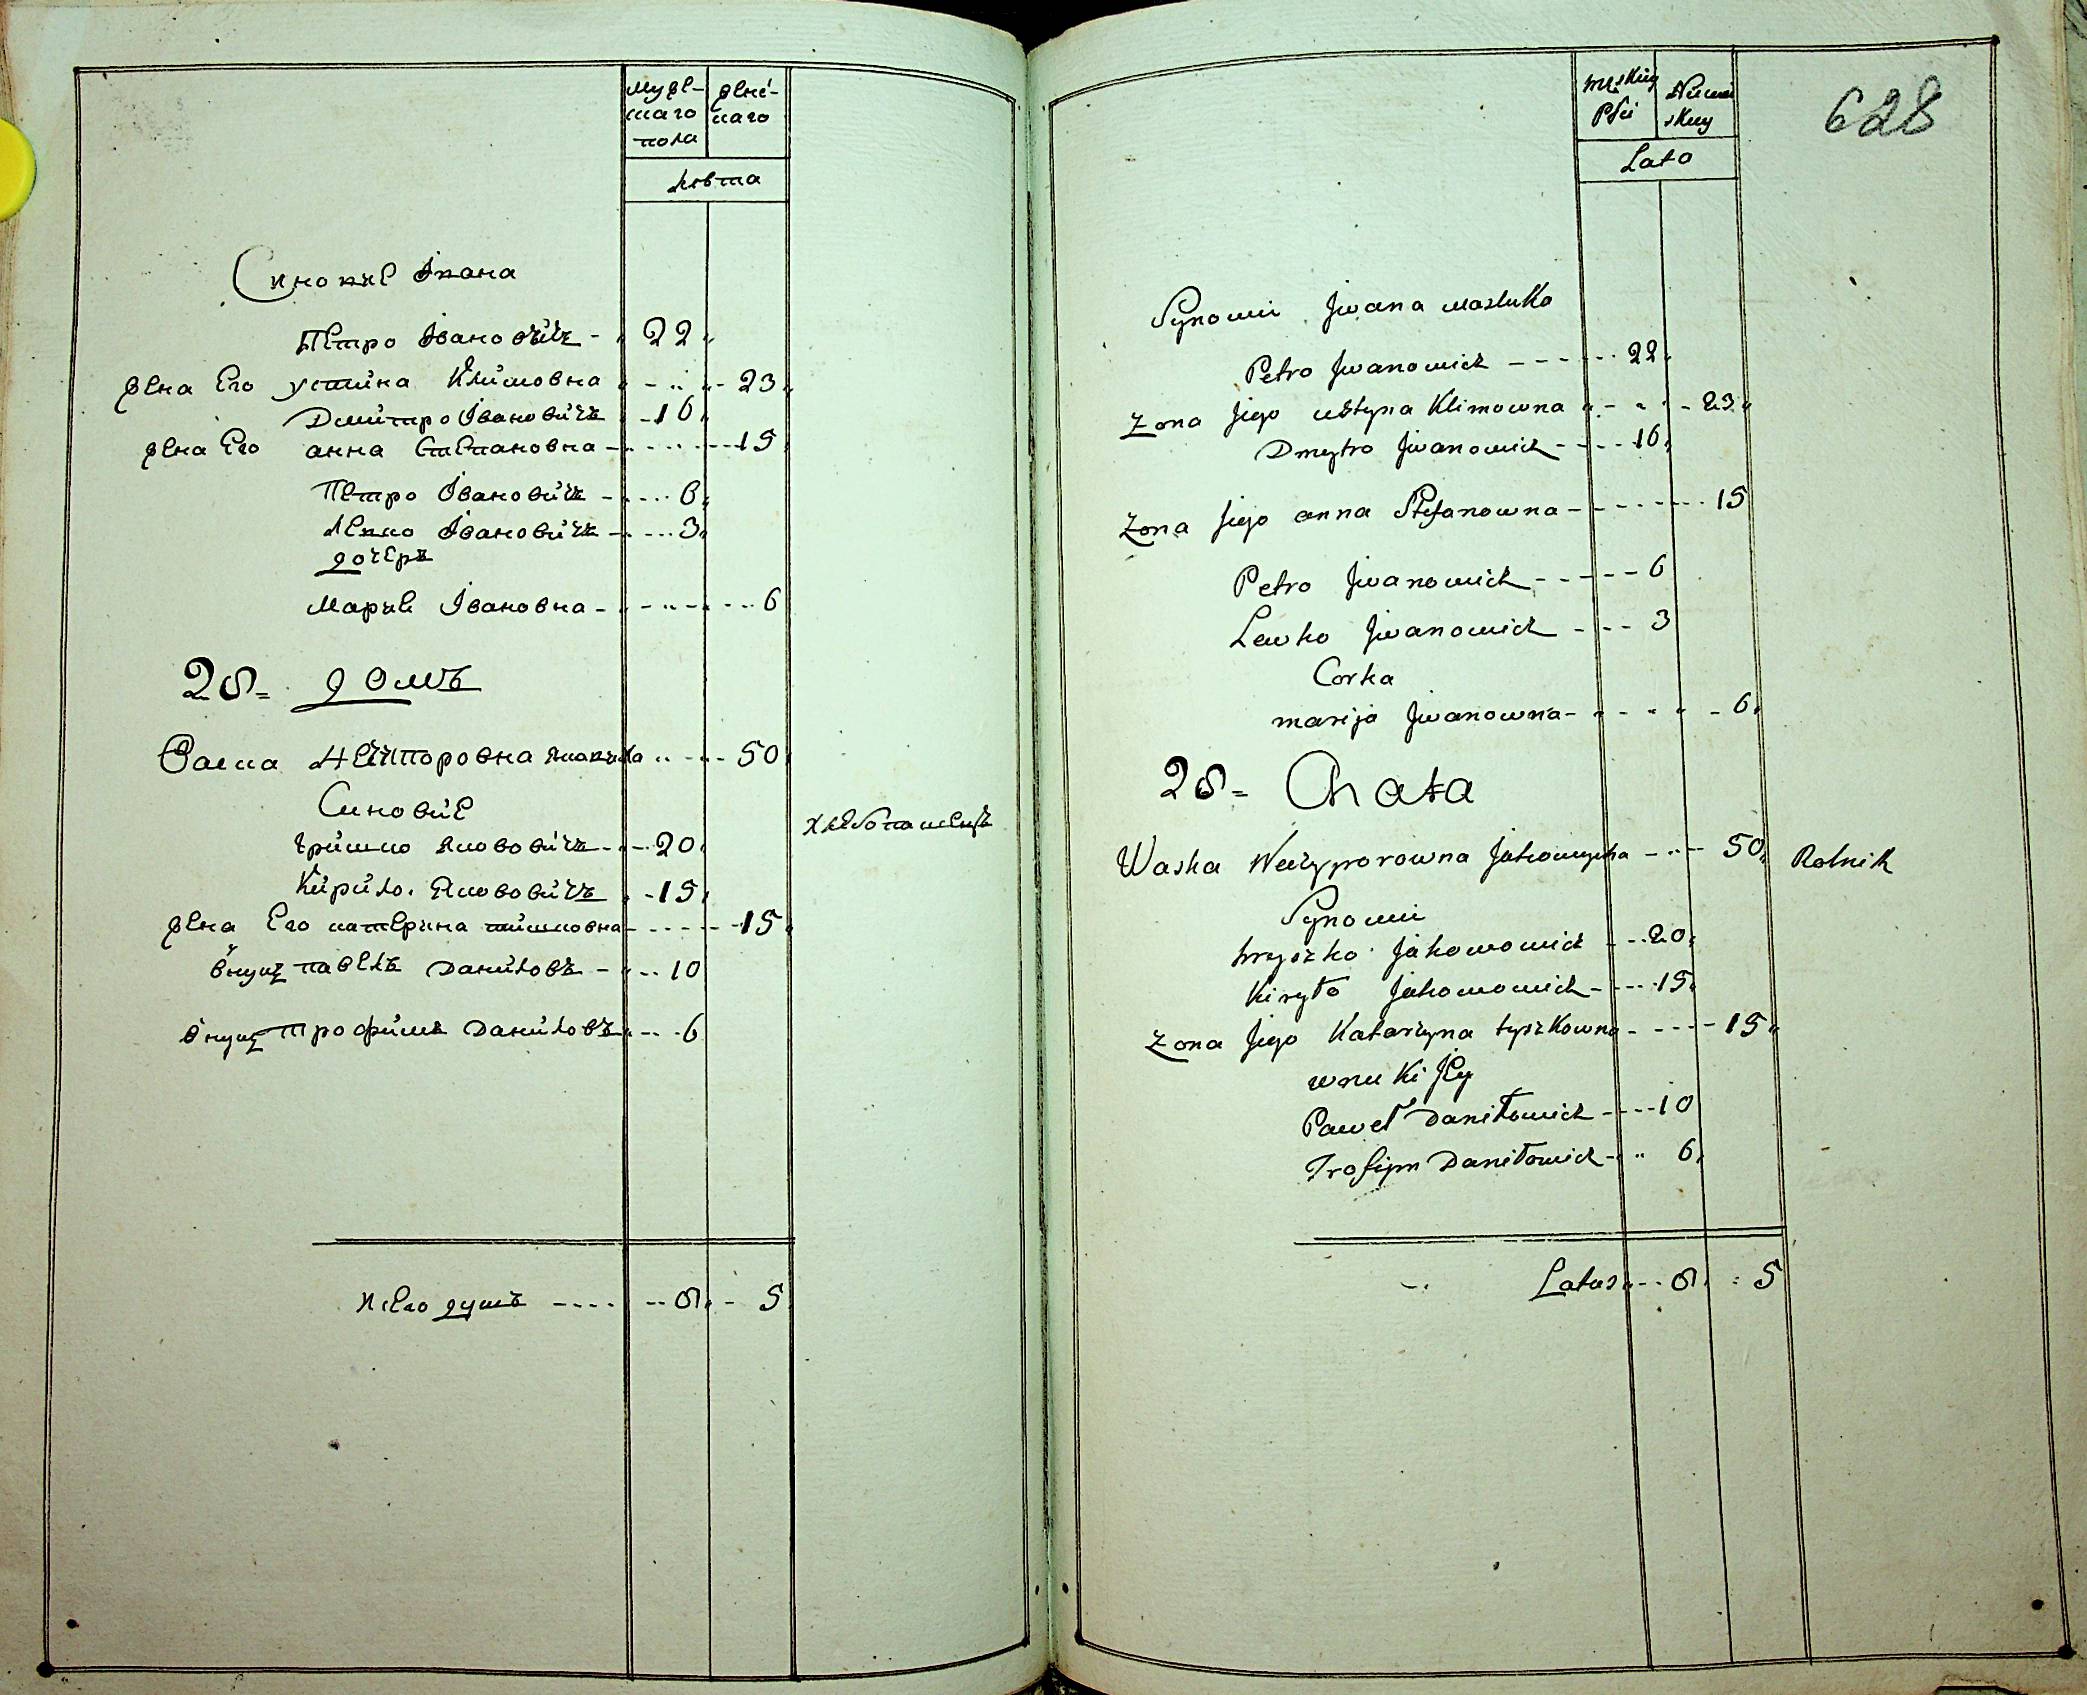 мужескаго пола
женскаго
лѣта
Синовие Івана
Петро Івановичъ - 22
жена Его устина Климовна - 23
Дмитро Івановичъ - 16
жена Его анна Степановна - 15
Петро Івановичъ - 6
Левко Івановичъ - 3
дочеръ
Мария Івановна - 6
28 = домъ
Васка Нечипоровна Яковиха - 50
Синовие
хлебопашецъ
гришко Яковович - 20
Кирило Яковович - 15
жена Его катерина тишковна - 15
внукъ павелъ Даниловъ - 10
внукъ трофимъ Даниловъ - 6
всего душъ - 8 - 5
628
męskiey Płci
żeńskiey
Lata
Synowie Jwana
Petro Jwanowicz - 22
żona jego ustyna Klimowna - 23
Dmytro Jwanowicz - 16
żona jego anna Stefanowna - 15
Petro Jwanowicz - 6
Lewko Jwanowicz - 3
Corka
marija Jwanowna - 6
28 = Chata
Waska Neczyporowna Jakowycha - 50 Rolnik
Synowie
hryszko Jakowowicz - 20
Kiryło Jakowowicz - 15
żona jego Katarzyna tyszkowna - 15
wnuki Jey
Paweł Daniłowicz - 10
Trofiym Daniłowicz - 6
Latus - 8 - 5